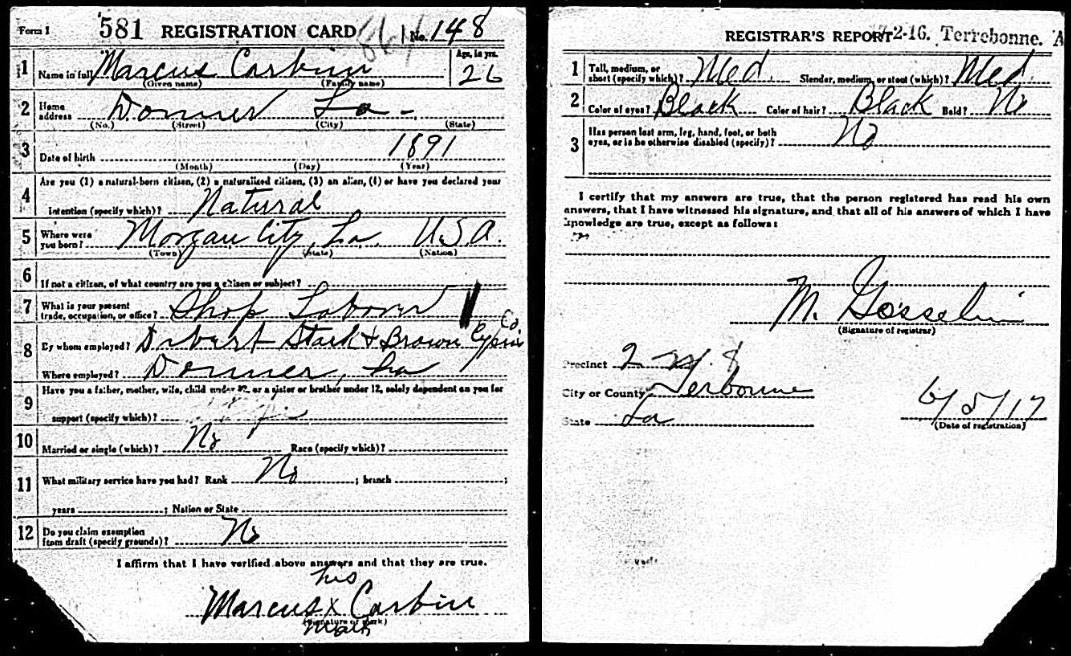 Form 1 581 REGISTRATION CARD No. 148
1 Name in full Marcus Carbin Age, in yrs. 26
(Given name) (Family name)
2 Home address Donner La -
(No.) (Street) (City) (State)
3 Date of birth 1891
(Month) (Day) (Year)
4 Are you (1) a natural-born citizen, (2) a naturalized citizen, (3) an alien, (4) or have you declared your
intention (specify which)? Natural
5 Where were you born? Morgan City, La. USA.
(Town) (State) (Nation)
6 If not a citizen, of what country are you a citizen or subject?
7 What is your present trade, occupation, or office? Shop Laborer
8 By whom employed? Dibert Stark & Brown Cypress Co.
Where employed? Donner, La
9 Have you a father, mother, wife, child under 12, or a sister or brother under 12, solely dependent on you for
support (specify which)?
10 Married or single (which)? No Race (specify which)?
11 What military service have you had? Rank No ; branch ;
years ; Nation or State
12 Do you claim exemption from draft (specify grounds)? No
I affirm that I have verified above answers and that they are true.
his
Marcus x Carbin
(Signature or mark)
mark
REGISTRAR'S REPORT 2-16. Terrebonne. A
1 Tall, medium, or short (specify which)? Med. Slender, medium, or stout (which)? Med
2 Color of eyes? Black Color of hair? Black Bald? No
3 Has person lost arm, leg, hand, foot, or both eyes, or is he otherwise disabled (specify)? No
I certify that my answers are true, that the person registered has read his own
answers, that I have witnessed his signature, and that all of his answers of which I have
knowledge are true, except as follows:
M. Gosselin
(Signature of registrar)
Precinct 2 8
City or County Terbonne
State La
6/5/17
(Date of registration)